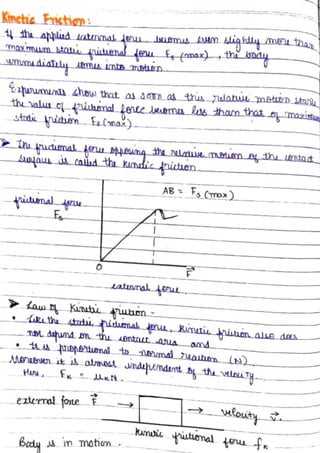 Kinetic Friction:
If the applied external force becomes even slightly more than
maximum static frictional force Fs (max), the body
immediately comes into motion.
Experiments show that as soon as this relative motion starts
the value of frictional force becomes less than that of maximum
static friction Fs (max).
➤ The frictional force opposing the relative motion of the contact
surfaces is called the kinetic friction.
AB = Fs (max)
frictional force
Fs
O
F
external force
➤ Law of Kinetic friction -
• Like the static frictional force, kinetic friction also does
not depend on the contact area and
• It is proportional to normal reaction (N)
Moreover it is almost independent of the velocity
Here, FK = μKN.
external force F → → velocity v.
Body is in motion. kinetic frictional force fK